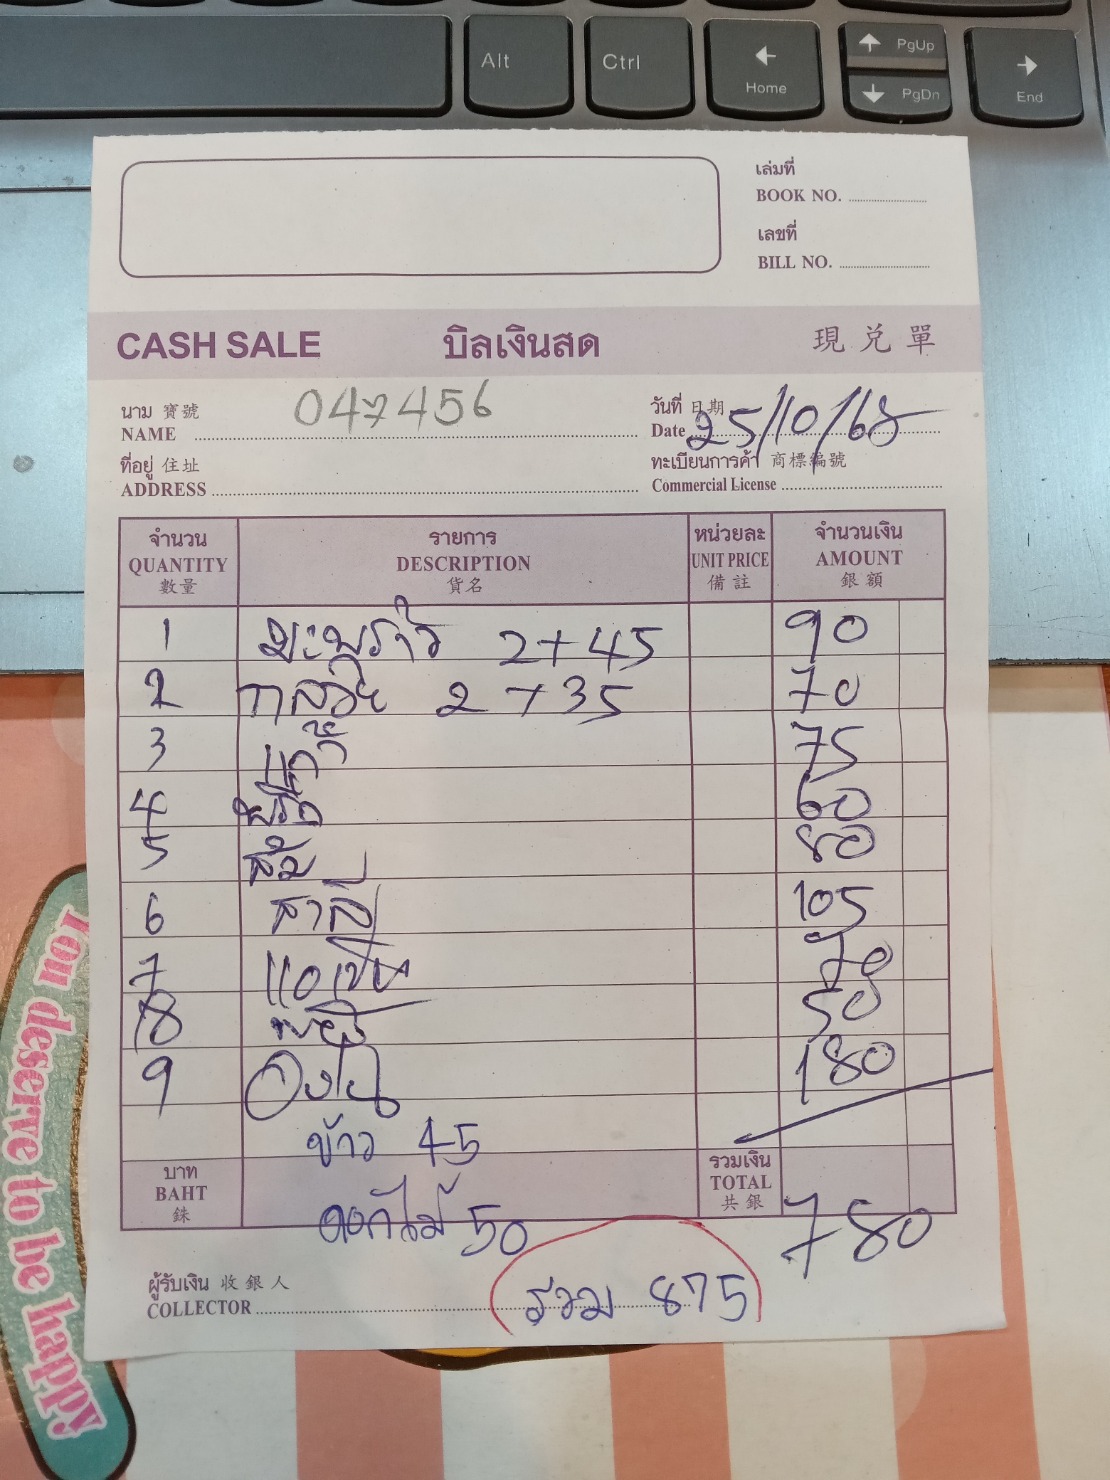 Alt Ctrl Home PgUp PgDn End
เล่มที่
BOOK NO.
เลขที่
BILL NO.
CASH SALE บิลเงินสด 現兌單
นาม 寶號
NAME 047456
วันที่ 日期
Date 25/10/68
ที่อยู่ 住址
ADDRESS
ทะเบียนการค้า 商標編號
Commercial License
จำนวน รายการ หน่วยละ จำนวนเงิน
QUANTITY DESCRIPTION UNIT PRICE AMOUNT
數量 貨名 備註 銀額
1 มะพร้าว 2+45 90
2 กล้วย 2+35 70
3 75
4 60
5 ส้ม 80
6 สาลี่ 105
7 แอปเปิ้ล
8 50
9 องุ่น 180
ข้าว 45
บาท
BAHT
銖
รวมเงิน
TOTAL
共銀
780
ดอกไม้ 50
ผู้รับเงิน 收銀人
COLLECTOR
รวม 875
You deserve to be happy